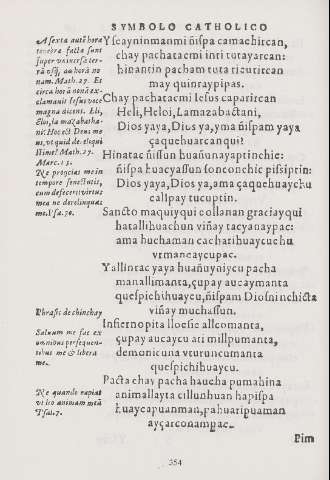 SYMBOLO CATHOLICO
A sexta autē hora
tenebrę factę sunt
super vniuersā ter-
rā vsq, ad horā no
nam. Math. 27. Et
circa horā nonā ex-
clamauit Iesus voce
magna dicens. Eli,
Hoc est Deus me
Math. 27.
Marc. 15.
Ne proijcias me in
tempore senectutis,
cum defecerit virtus
mea ne derelinquas
me. Psa. 70.
Phrasis de chinchay
Saluum me fac ex
omnibus persequen-
tibus me & libera
me.
Ne quando rapiat
vt leo animam meā
Psal. 7.
Yscayninmanmi ñispa camachircan,
chay pachatacmi inti tutayarcan:
hinantin pacham tuta ricurircan
may quinraypipas.
Chay pachatacmi Iesus caparircan
Heli, Heloi, Lamazabactani,
Dios yaya, Dios ya, yma ñispam yaya
çaquehuarcanqui?
Hinatac ñissun huañunayaptinchic:
ñispa huacyassun sonconchic pissiptin:
Dios yaya, Dios ya, ama çaquehuaychu
callpay tucuptin.
Sancto maquiyqui collanan graciayqui
hatallihuachun viñay tacyanaypac:
ama huchaman cacharihuaycuchu
vrmancaycupac.
Yallinrac yaya huañuyniycu pacha
manallimanta, çupay aucaymanta
quespichihuaycu, ñispam Diosninchicta
viñay muchassun.
Infiernopita lloesic allcomanta,
çupay aucaycu ari millpumanta,
demonicuna vturuncumanta
quespichihuaycu.
Pacta chay pacha haucha pumahina
animallayta cillunhuan hapispa
huaycapuanman, pahuaripuaman
ayçarconampac.
Pim
354